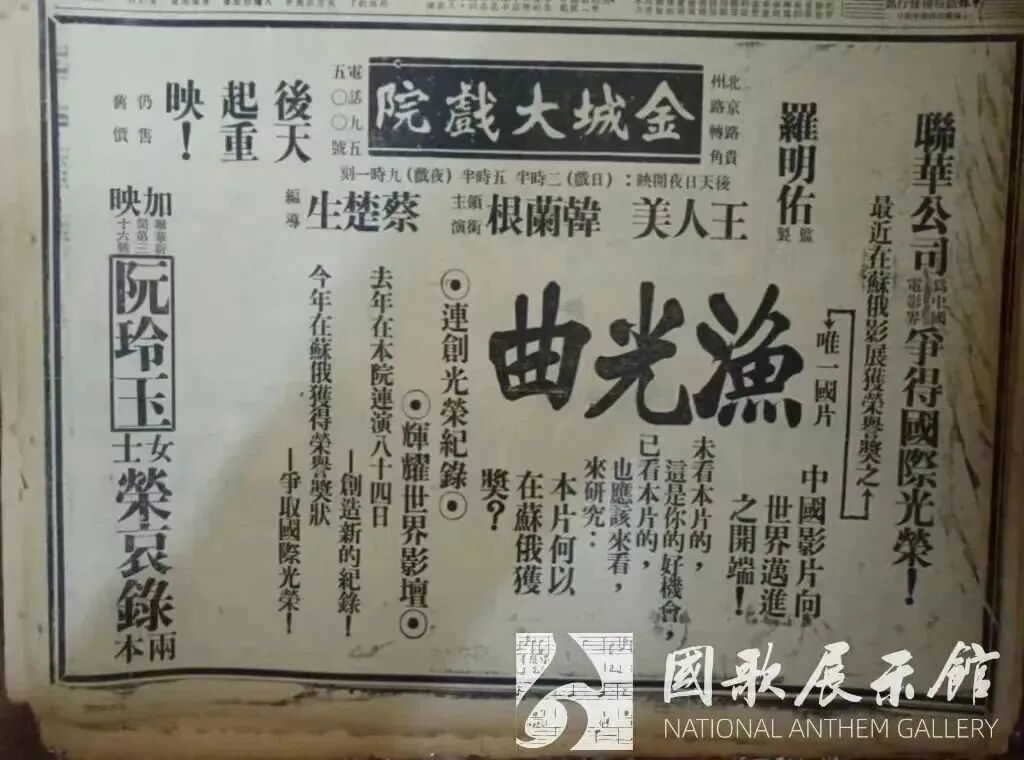 聯華公司為中國電影界爭得國際光榮！
最近在蘇俄影展獲榮譽獎之
唯一國片
羅明佑監製
北京路貴
州路轉角
金城大戲院
電話九五
五〇〇號
後天
起重
映！
仍售
舊價
後天日夜開映：(日戲)二時半 五時半 (夜戲)九時一刻
王人美
韓蘭根
領銜
主演
蔡楚生
編導
漁光曲
中國影片向
世界邁進
之開端！
未看本片的，
這是你的好機會，
已看本片的，
也應該來看，
來研究：
本片何以
在蘇俄獲
獎？
⊙連創光榮紀錄⊙
⊙輝耀世界影壇⊙
去年在本院連演八十四日
—創造新的紀錄！
今年在蘇俄獲得榮譽獎狀
—爭取國際光榮！
加映
聯華新
聞第三
十六號
阮玲玉女士榮哀錄兩本
國歌展示館
NATIONAL ANTHEM GALLERY